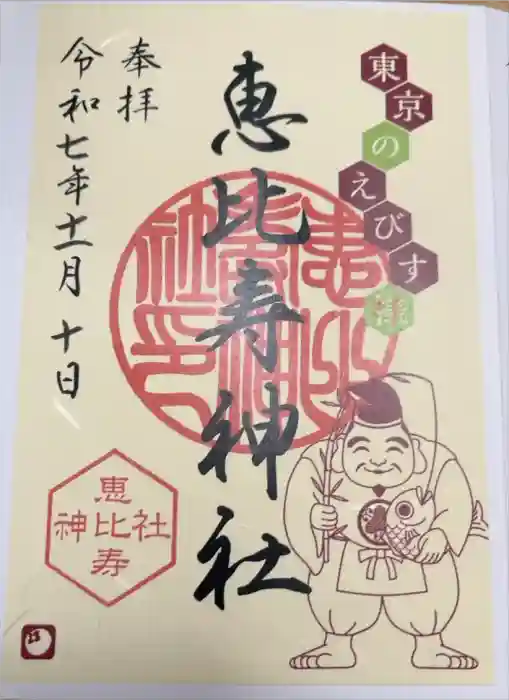 東京のえびす様
恵比寿神社
奉拝
令和七年十一月十日
恵比寿
神社